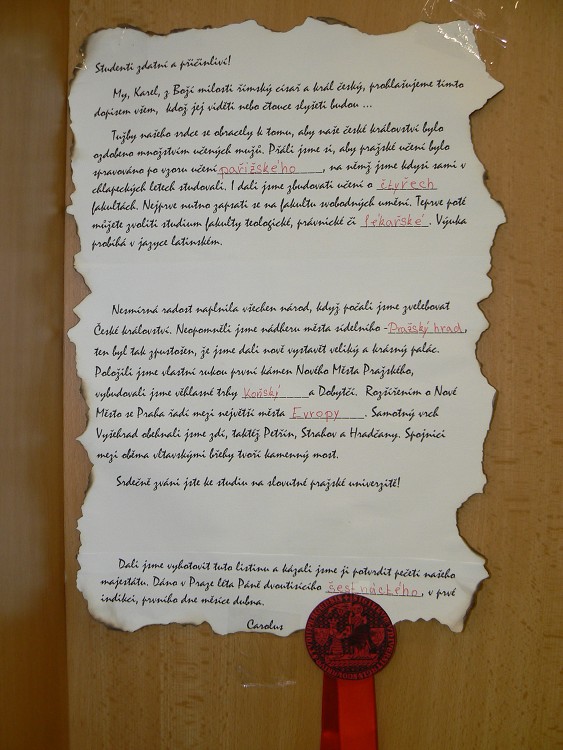 Studenti zdatní a příčinliví!
My, Karel, z Boží milosti římský císař a král český, prohlašujeme tímto
dopisem všem, kdož jej viděti nebo čtouce slyšeti budou ...
Tužby našeho srdce se obracely k tomu, aby naše české království bylo
ozdobeno množstvím učených mužů. Přáli jsme si, aby pražské učení bylo
spravováno po vzoru učení pařížského, na němž jsme kdysi sami v
chlapeckých letech studovali. I dali jsme zbudovati učení o čtyřech
fakultách. Nejprve nutno zapsati se na fakultu svobodných umění. Teprve poté
můžete zvoliti studium fakulty teologické, právnické či lékařské. Výuka
probíhá v jazyce latinském.
Nesmírná radost naplnila všechen národ, když počali jsme zvelebovat
České království. Neopomněli jsme nádheru města sídelního -Pražský hrad,
ten byl tak zpustošen, že jsme dali nově vystavět veliký a krásný palác.
Položili jsme vlastní rukou první kámen Nového Města Pražského,
vybudovali jsme věhlasné trhy Koňský a Dobytčí. Rozšířením o Nové
Město se Praha řadí mezi největší města Evropy. Samotný vrch
Vyšehrad obehnali jsme zdí, taktéž Petřín, Strahov a Hradčany. Spojnici
mezi oběma vltavskými břehy tvoří kamenný most.
Srdečně zváni jste ke studiu na slovutné pražské univerzitě!
Dali jsme vyhotovit tuto listinu a kázali jsme ji potvrdit pečetí našeho
majestátu. Dáno v Praze léta Páně dvoutisícího šestnáctého, v prvé
indikci, prvního dne měsíce dubna.
Carolus